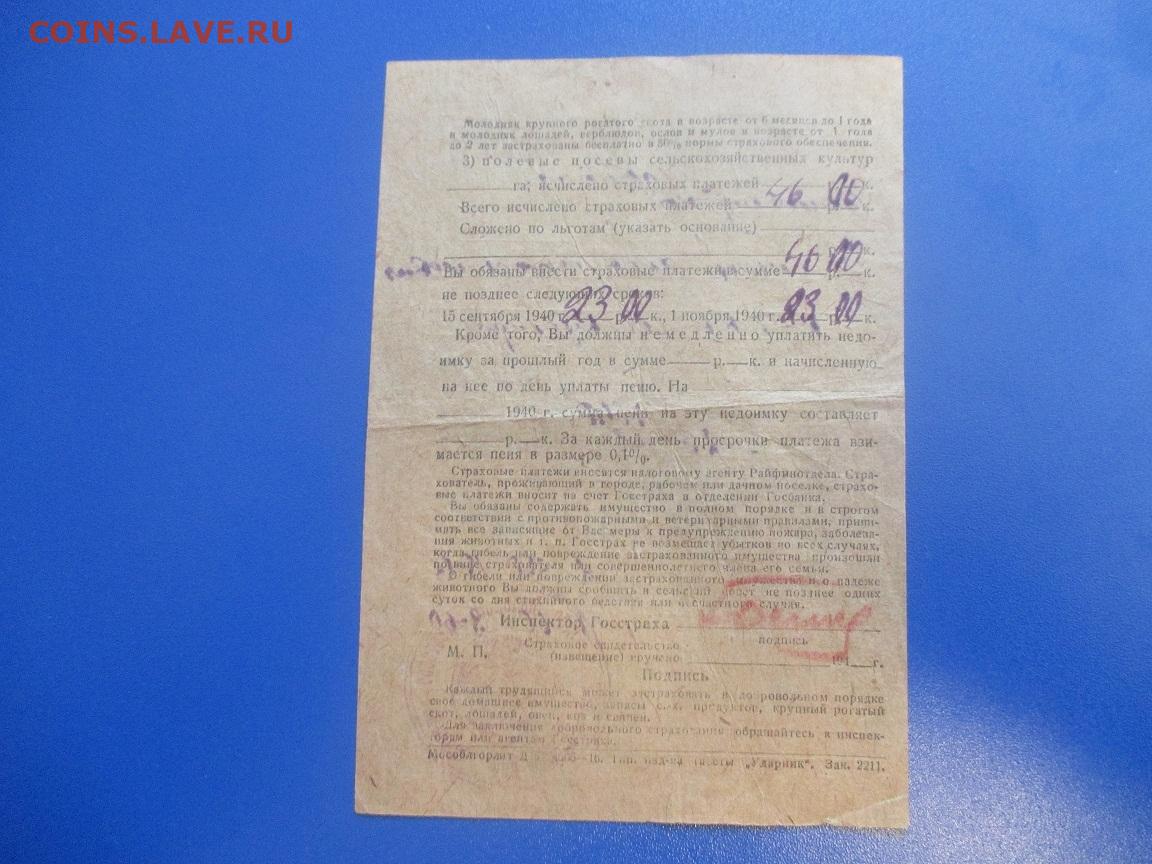 COINS.LAVE.RU
Молодняк крупного рогатого скота в возрасте от 6 месяцев до 1 года
и молодняк лошадей, верблюдов, ослов и мулов в возрасте от 1 года
до 2 лет застрахованы бесплатно в 50% нормы страхового обеспечения.
3) полевые посевы сельскохозяйственных культур
га; исчислено страховых платежей 46 р. 00 к.
Всего исчислено страховых платежей р. к.
Сложено по льготам (указать основание)
р. к.
Вы обязаны внести страховые платежи в сумме 46 р. 00 к.
не позднее следующих сроков:
15 сентября 1940 г. 23 р. 00 к., 1 ноября 1940 г. 23 р. 00 к.
Кроме того, Вы должны немедленно уплатить недо-
имку за прошлый год в сумме р. к. и начисленную
на нее по день уплаты пеню. На
1940 г. сумма пени на эту недоимку составляет
р. к. За каждый день просрочки платежа взи-
мается пеня в размере 0,1%.
Страховые платежи вносятся налоговому агенту Райфинотдела. Стра-
хователь, проживающий в городе, рабочем или дачном поселке, страхо-
вые платежи вносит на счет Госстраха в отделении Госбанка.
Вы обязаны содержать имущество в полном порядке и в строгом
соответствии с противопожарными и ветеринарными правилами, прини-
мать все зависящие от Вас меры к предупреждению пожара, заболева-
ния животных и т. п. Госстрах не возмещает убытков во всех случаях,
когда гибель или повреждение застрахованного имущества произошли
по вине страхователя или совершеннолетнего члена его семьи.
О гибели или повреждении застрахованного имущества и о падеже
животного Вы должны сообщить в сельский совет не позднее одних
суток со дня стихийного бедствия или несчастного случая.
Инспектор Госстраха
подпись
М. П.
Страховое свидетельство
(извещение) вручено 194 г.
Подпись
Каждый трудящийся может застраховать в добровольном порядке
свое домашнее имущество, запасы с.-х. продуктов, крупный рогатый
скот, лошадей, овец, коз и свиней.
Для заключения добровольного страхования обращайтесь к инспек-
торам или агентам Госстраха.
Мособлгорлит Тип. изд-ва газеты „Ударник“. Зак. 2211.